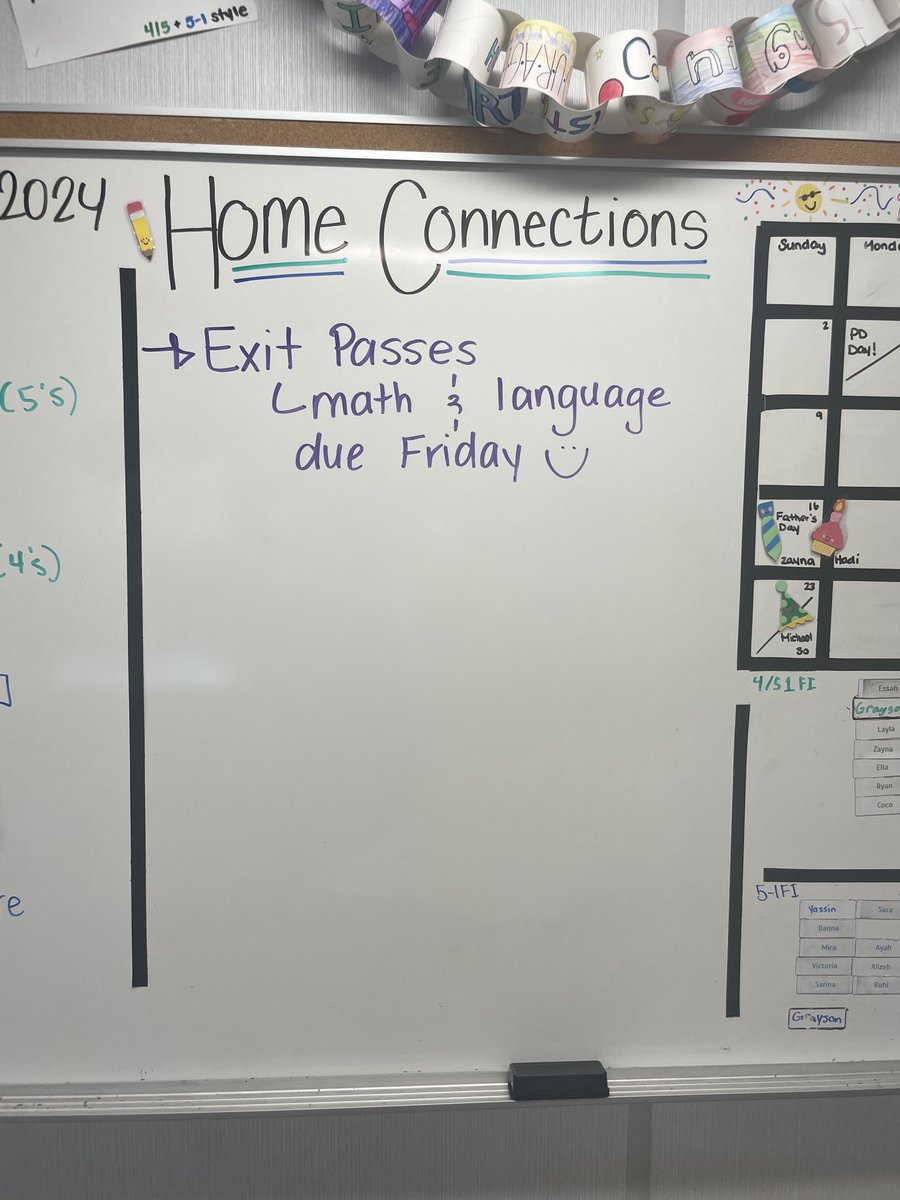 4/5 + 5-1 style
2024
Home Connections
→ Exit Passes
math & language
due Friday
(5's)
(4's)
Sunday
2
PD
DAY!
9
16
Father's
Day
Zayna
Hadi
23
Michael
30
4/5 1 FI
Essah
Layla
Zayna
Ella
Ryan
Coco
5-1FI
Yassin Sara
Danna
Mira Ayah
Victoria Alizeh
Sarina Ruhi
Grayson